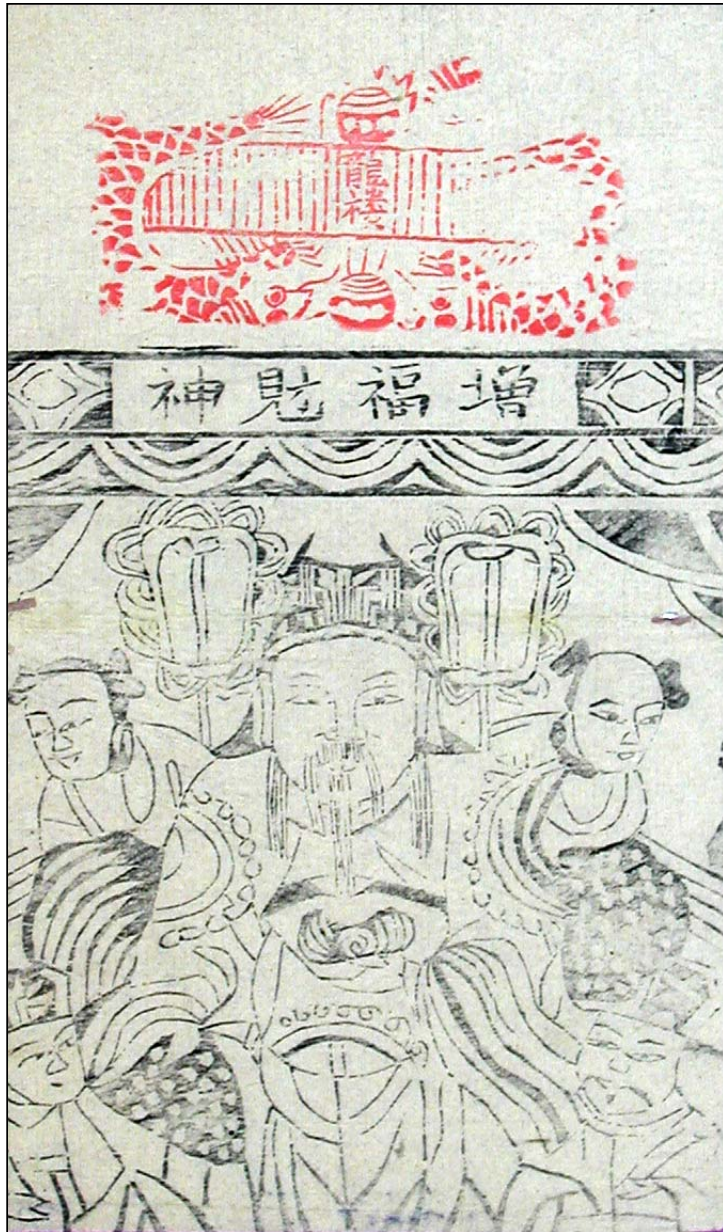 龍楼
增福財神